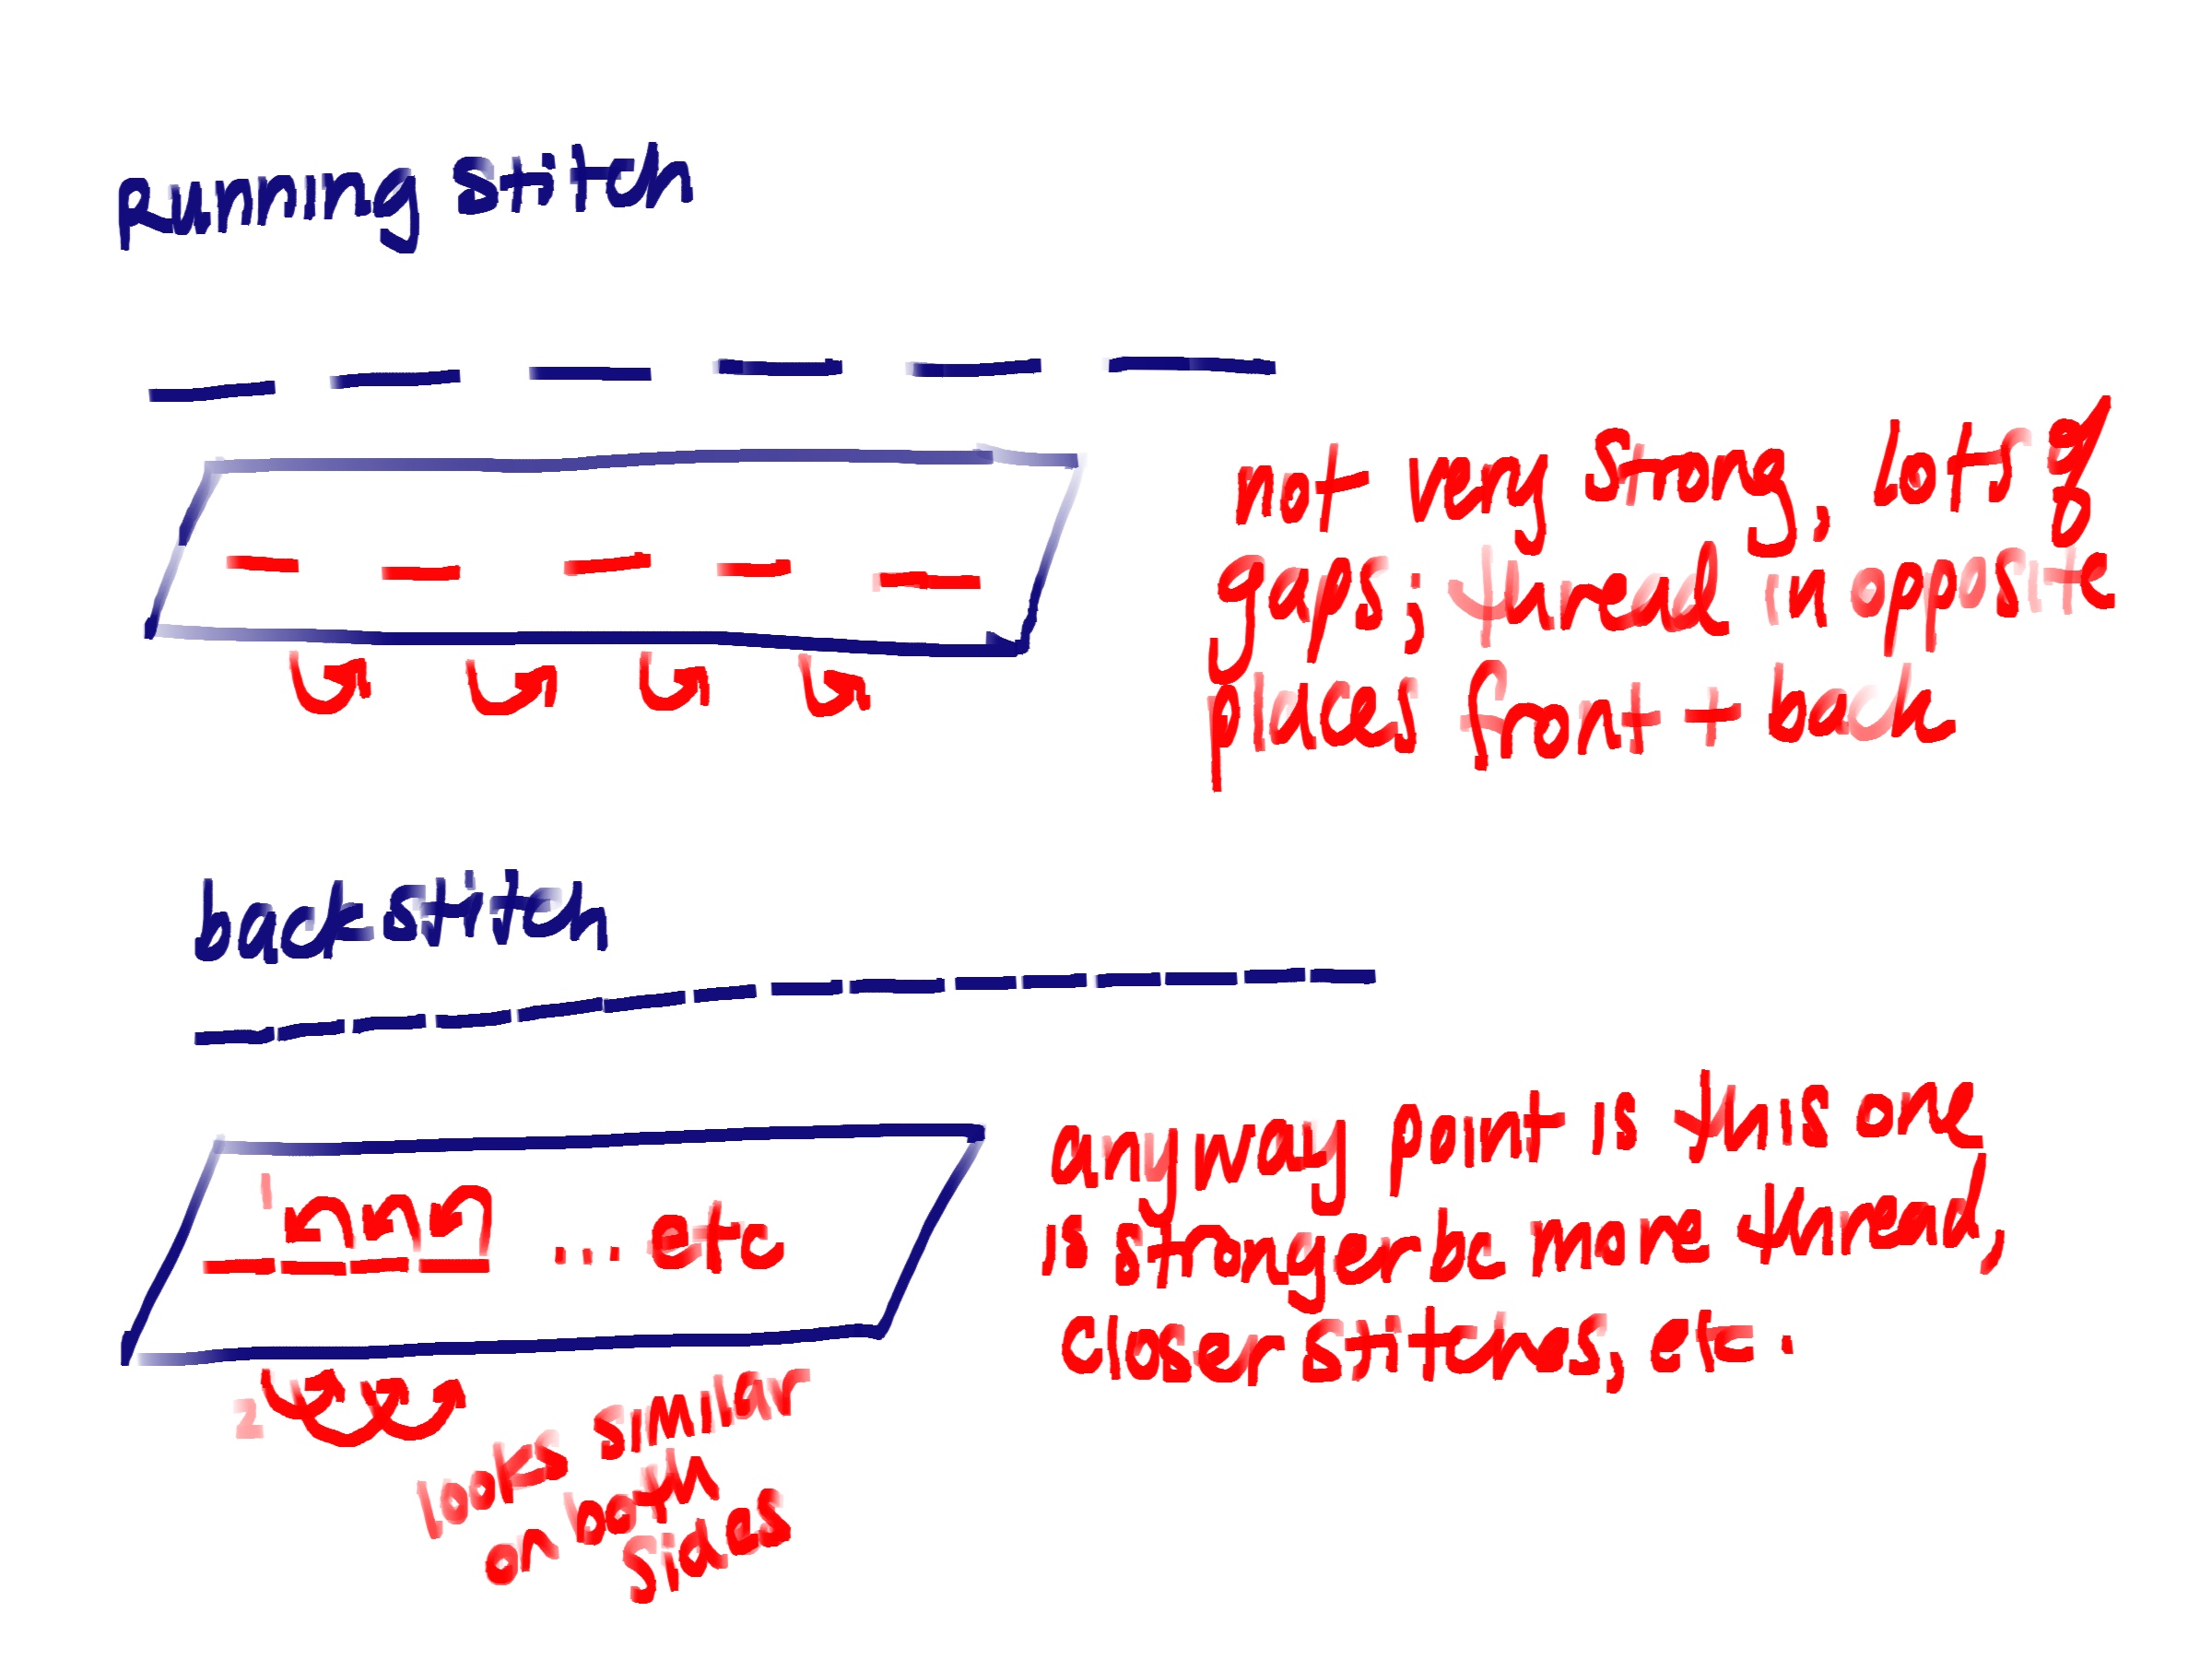 Running stitch
not very strong, lots of
gaps; thread in opposite
places front + back
backstitch
1
... etc
anyway point is this one
is stronger bc more thread,
closer stitches, etc.
2
looks similar
on both
sides